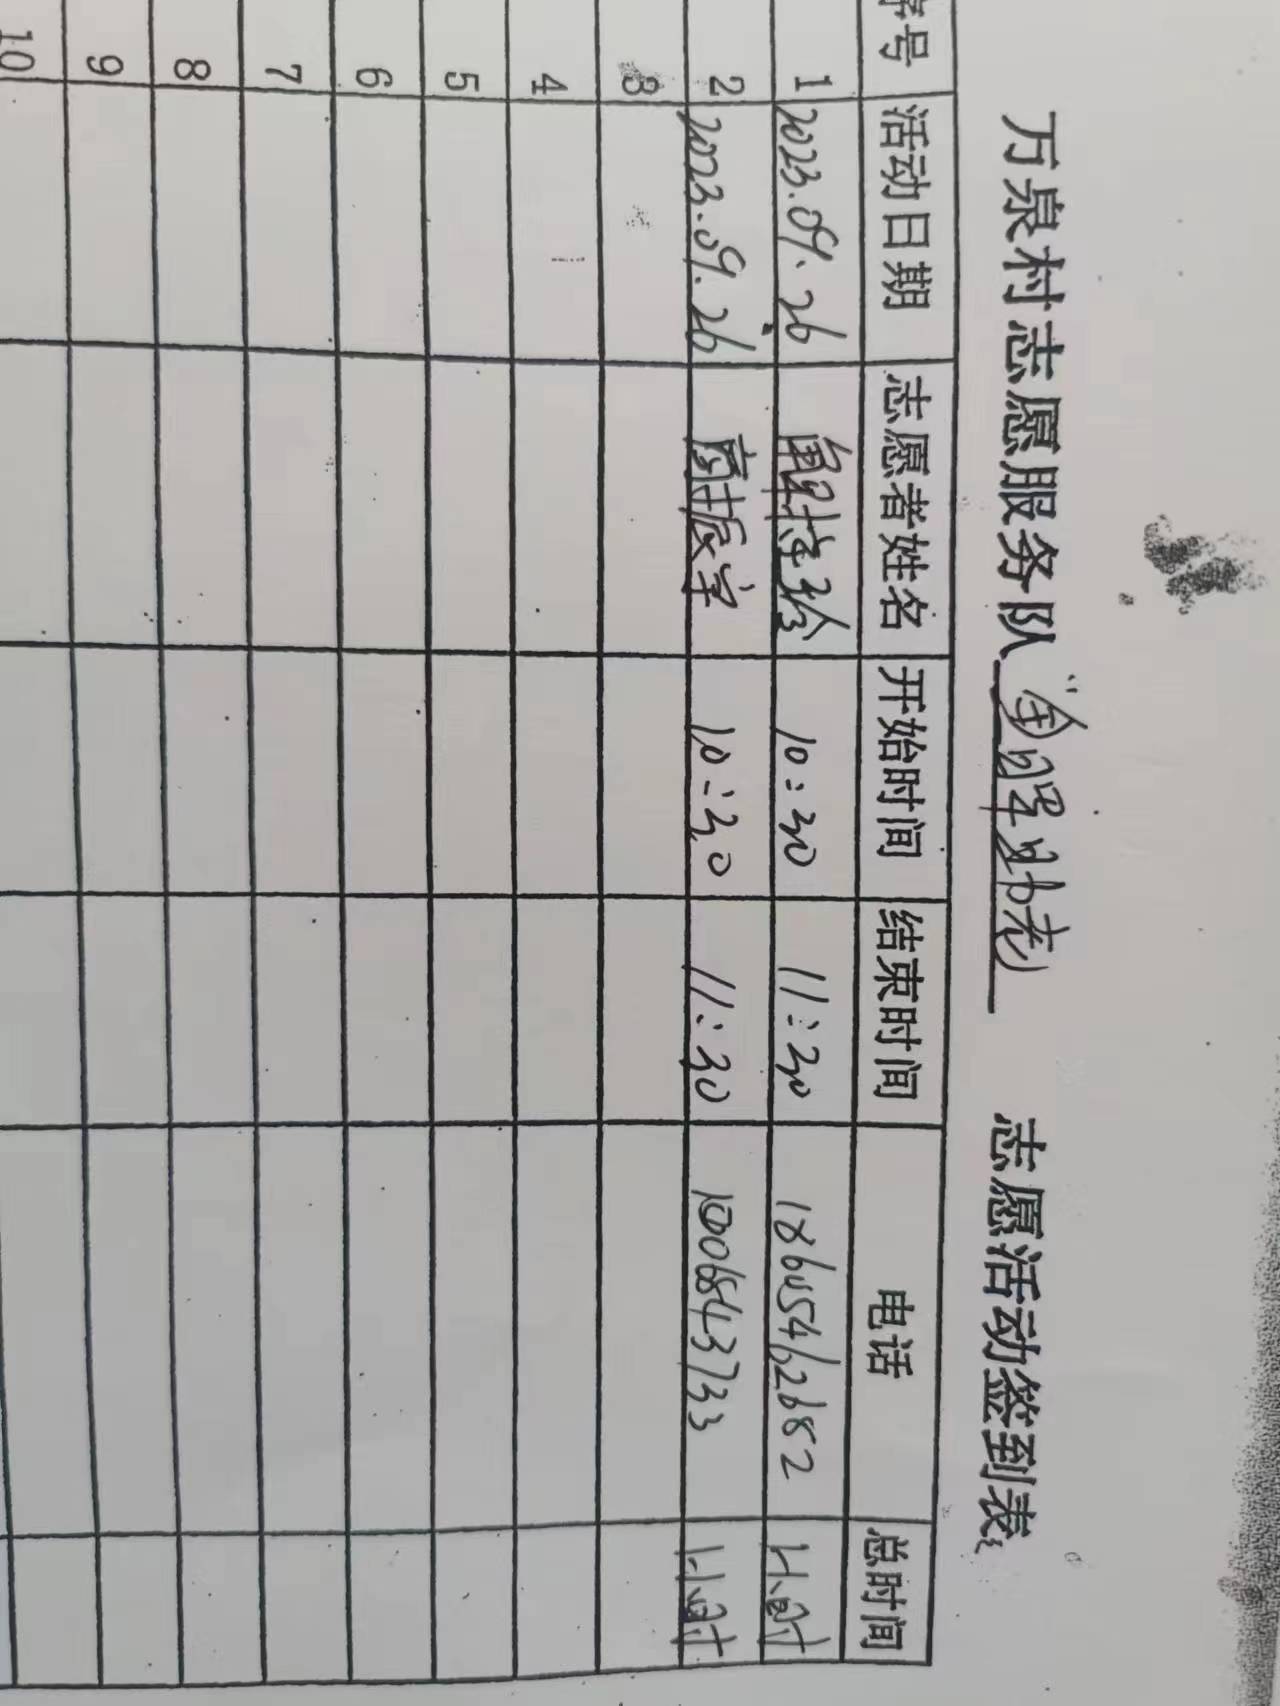 万泉村志愿服务队 助老 志愿活动签到表
序号 活动日期 志愿者姓名 开始时间 结束时间 电话 总时间
1 2023.09.26 10:30 11:30 1小时
2 2023.09.26 商振宇 10:30 11:30 1小时
3
4
5
6
7
8
9
10